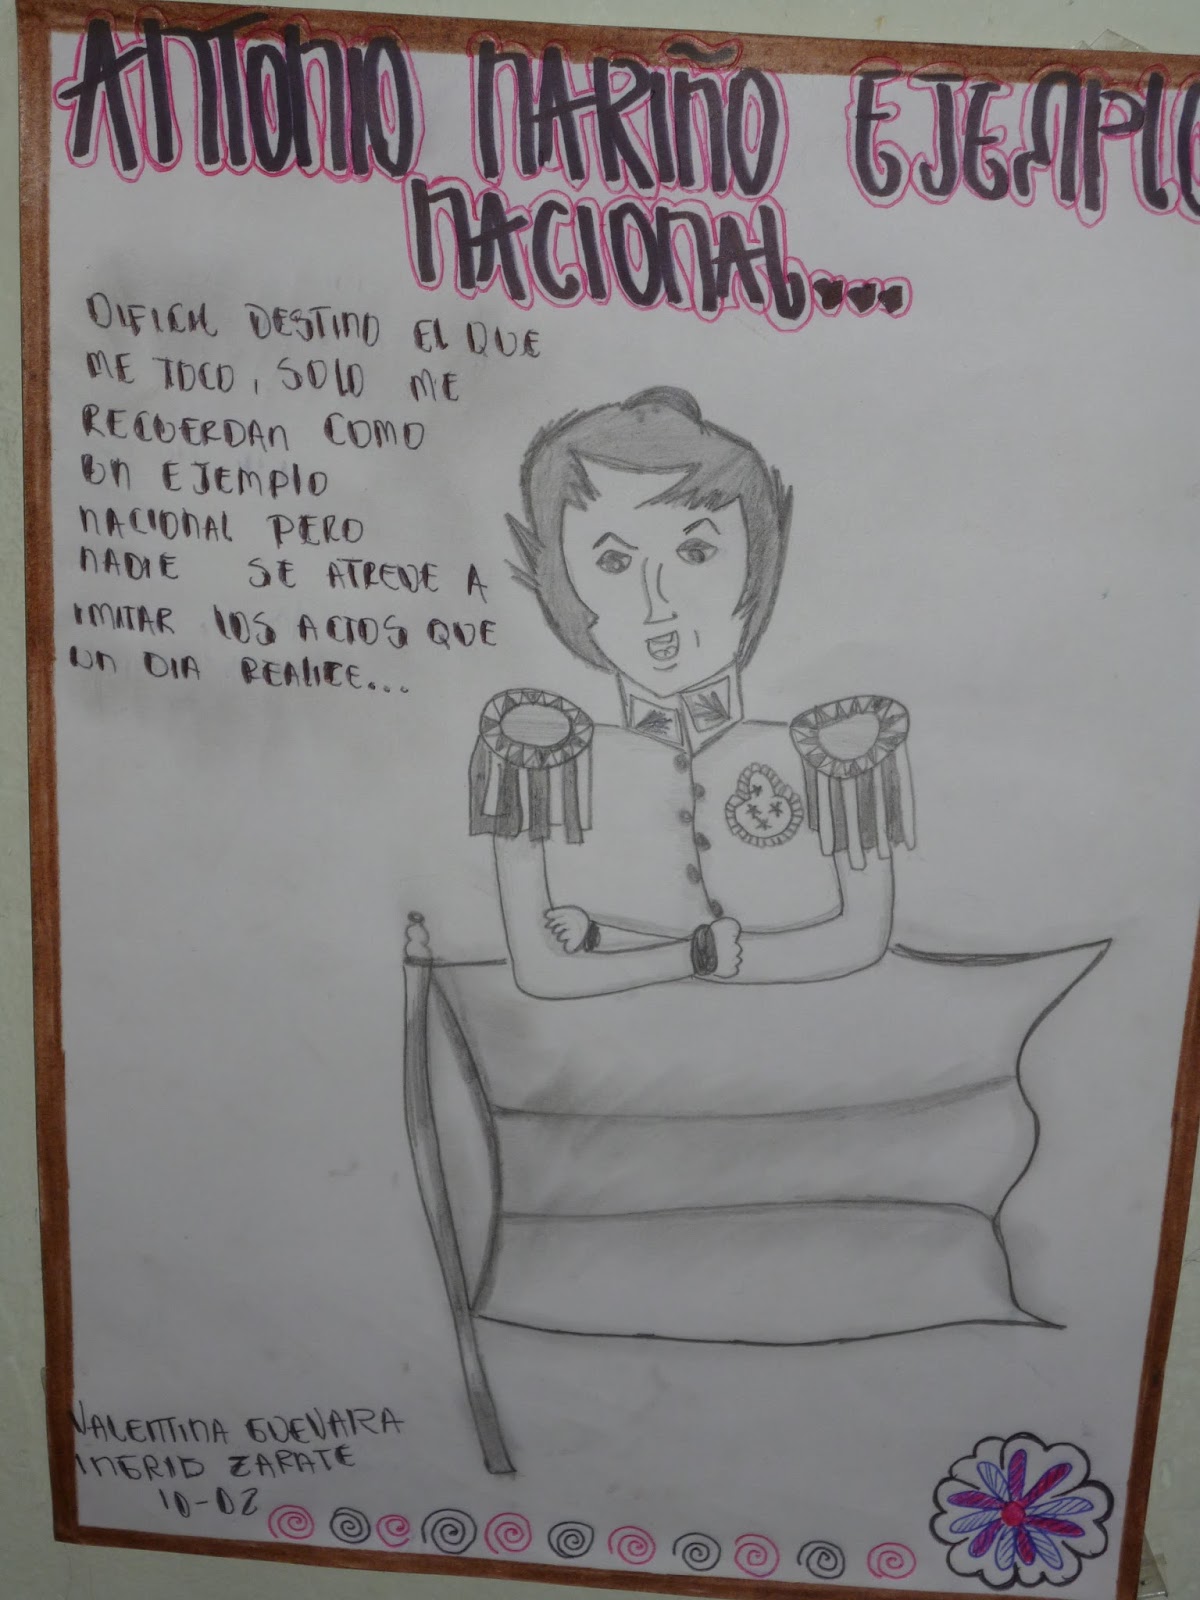 ANTONIO NARIÑO EJEMPLO
NACIONAL...
DIFICIL DESTINO EL QUE
ME TOCO, SOLO ME
RECUERDAN COMO
UN EJEMPLO
NACIONAL PERO
NADIE SE ATREVE A
IMITAR LOS ACTOS QUE
UN DIA REALICE...
VALENTINA GUEVARA
INGRID ZARATE
10-02